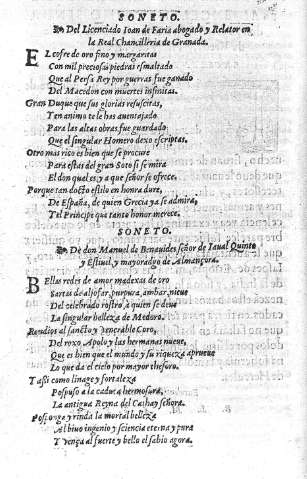 SONETO.
Del Licenciado Ioan de Faria abogado y Relator en
la Real Chancilleria de Granada.
EL cofre de oro fino y margaritas
Con mil preciosas piedras esmaltado
Que al Persa Rey por guerras fue ganado
Del Macedon con muertes infinitas.
Gran Duque que sus glorias resuscitas,
Y en animo te le has aventajado
Para las altas obras fue guardado
Que el singular Homero dexo escriptas.
Otro mas rico es bien que se procure
Para estas del gran Soto si se mira
El don qual es y a que señor se ofrece.
Porque tan docto estilo en honra dure,
De España, de quien Grecia ya se admira,
Y el Principe que tanto honor merece.
SONETO.
De don Manuel de Benauides señor de Iaual Quinto
y Estiuiel, y mayorazgo de Almançora.
BEllas redes de amor madexas de oro
Sartas de aljofar, purpura, ambar, nieue
Del celebrado rostro, a quien se deue
La singular belleza de Medoro.
Rendios al sancto y venerable Coro,
Del roxo Apolo y las hermanas nueue,
Que es bien que el mundo y su riqueza aprueue
Lo que da el cielo por mayor thesoro.
Y assi como linage y fortaleza
Pospuso a la caduca hermosura,
La antigua Reyna del Cathay señora.
Posponga y rinda la mortal belleza
Al biuo ingenio y sciencia eterna y pura
Y vença al fuerte y bello el sabio agora.